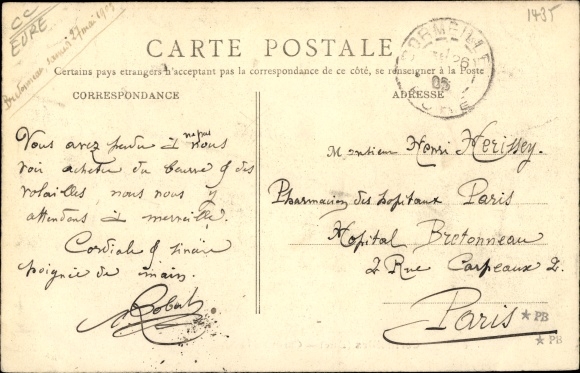 CC
EURE
Bretonneau samedi 27 mai 1905
1435
CARTE POSTALE
Certains pays étrangers n'acceptant pas la correspondance de ce côté, se renseigner à la Poste
CORRESPONDANCE
ADRESSE
CORMEILLE
26
05
EURE
Vous avez perdu à ne pas nous
voir acheter du beurre & des
volailles, nous nous y
attendons à merveille.
Cordiale & sincère
poignée de main.
Monsieur Henri Hérissey.
Pharmacien des hopitaux Paris
Hopital Bretonneau
2 Rue Carpeaux 2.
Paris
PB
PB